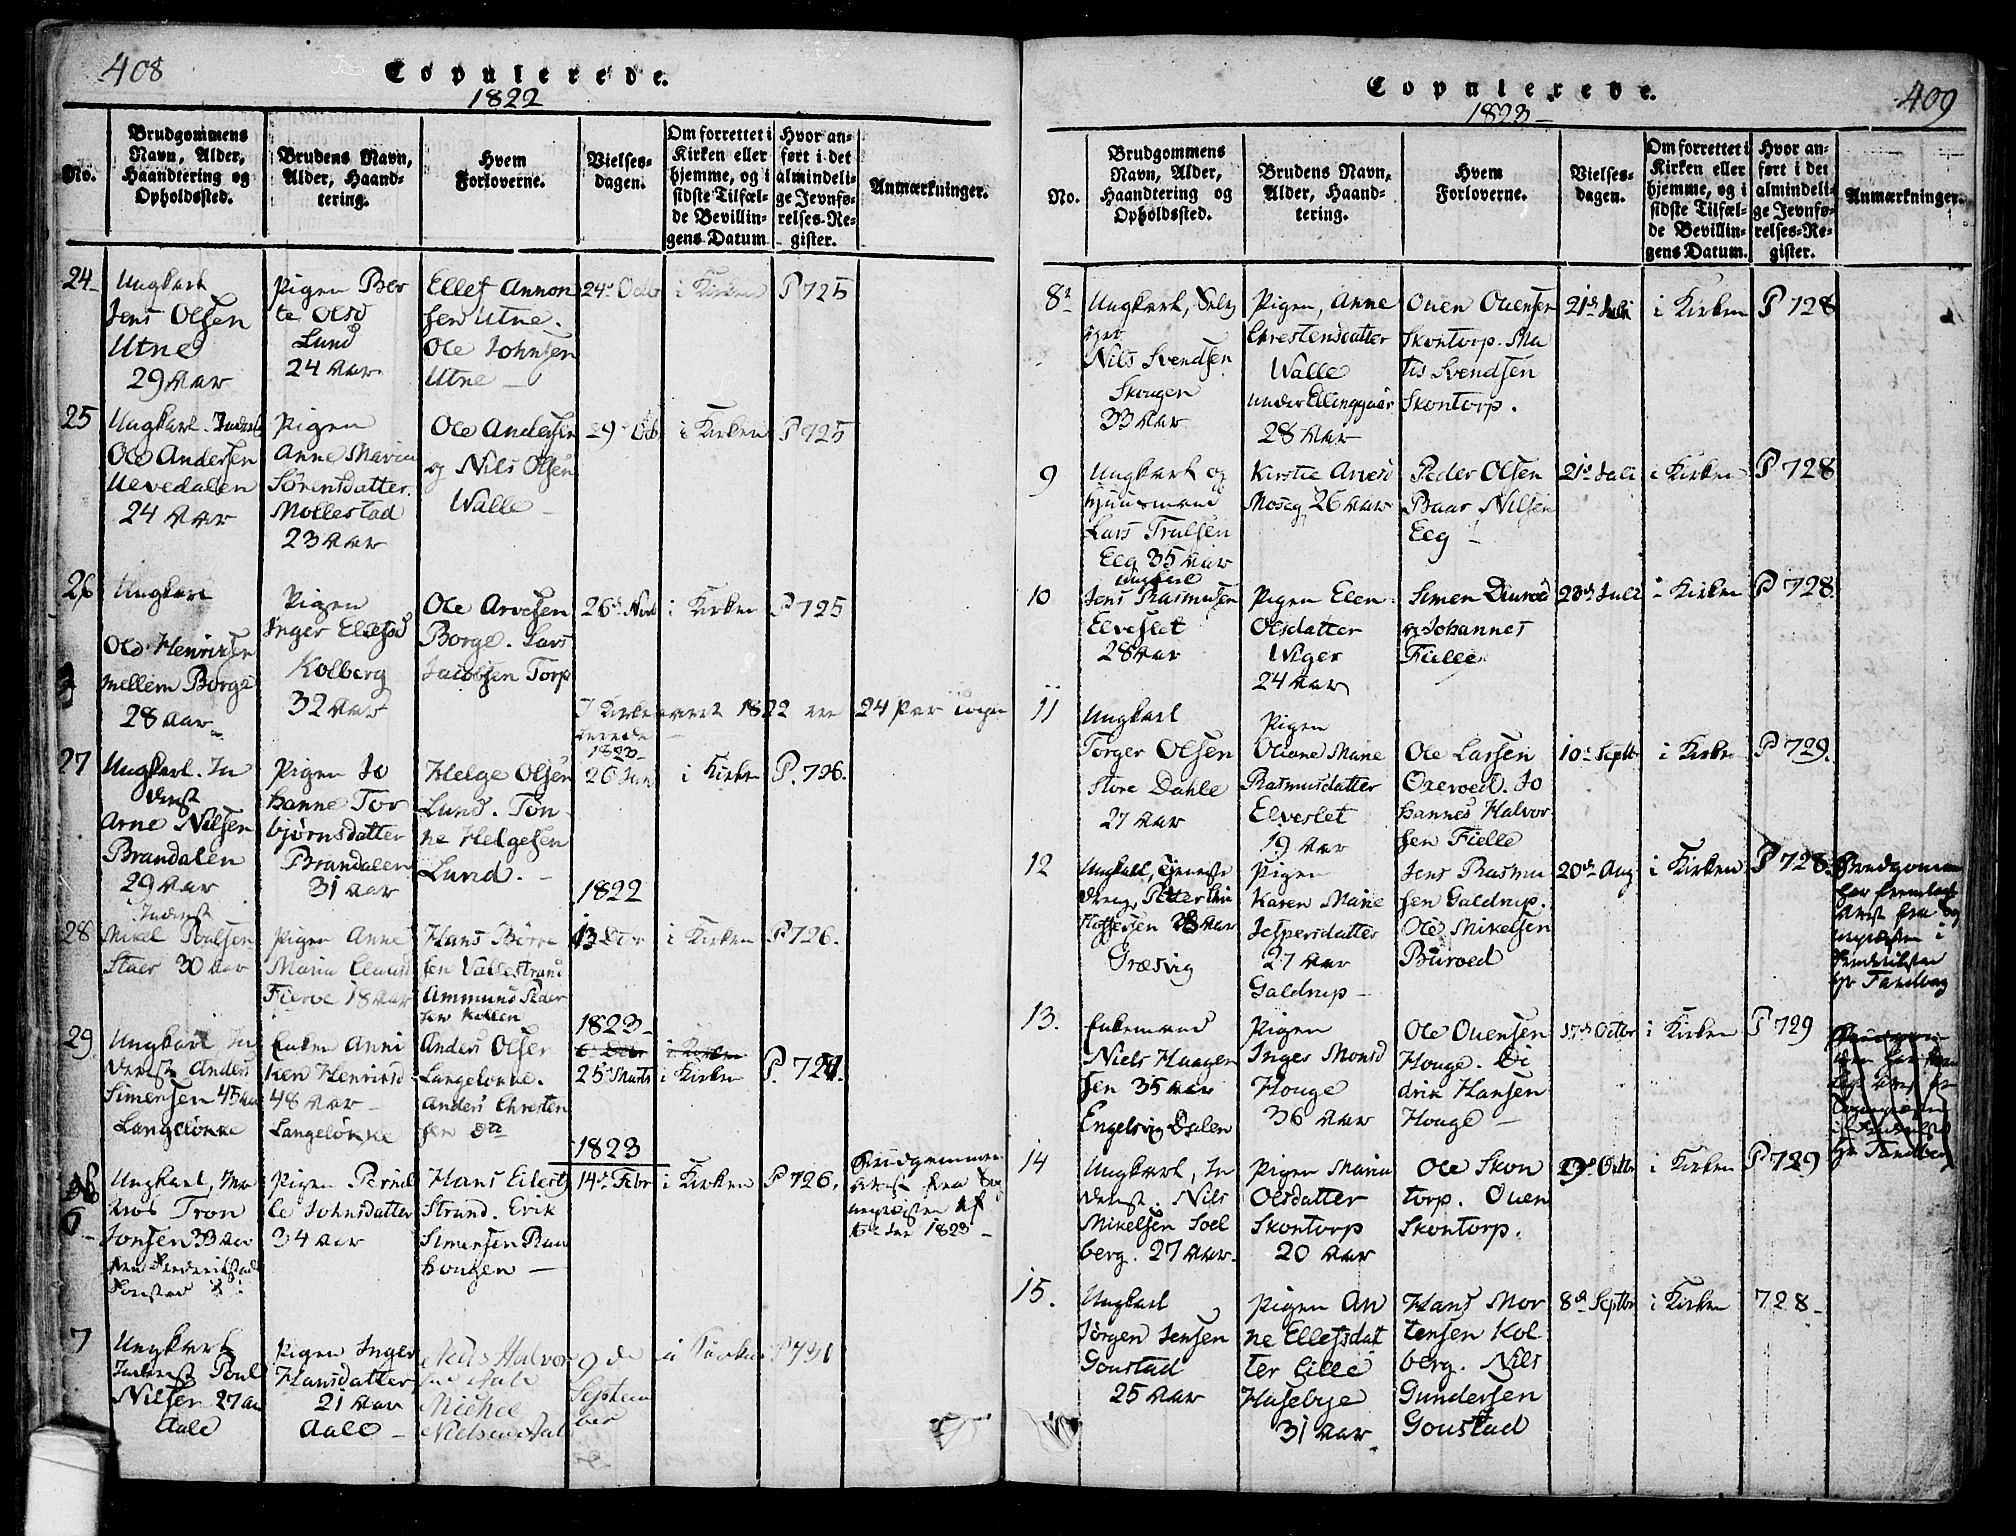 408
Copulerede.
1822
No.
Brudgommens
Navn, Alder,
Haandtering og
Opholdssted.
Brudens Navn,
Alder, Haand-
tering.
Hvem
Forloverne.
Vielses-
dagen.
Om forrettet i
Kirken eller
hjemme, og i
sidste Tilfæl-
de Bevillin-
gens Datum
Hvor an-
ført i det
almindeli-
ge Jevnfø-
relses-Re-
gister.
Anmærkninger.
24
Ungkarl
Jens Olsen
Utne
29 Aar
Pigen Ber
te Olsd
Lund
24 Aar
Ellef Annon
sen Utne
Ole Johnsen
Utne
24 Octb
i Kirken
P 725
25
Ungkarl. Inderst
Ole Andersen
Uevedalen
24 Aar
Pigen
Anne Maria
Sörensdatter
Mollestad
23 Aar
Ole Andersen
og Nils Olsen
Walle
29 Ocb
i Kirken
P 725
26
Ungkarl
Ole Henriksen
mellem Borge
28 Aar
Pigen
Inger Ellefsd
Kolberg
32 Aar
Ole Arvesen
Borge. Lars
Jacobsen Torp
26 Novb
i Kirken
P 725
I Kirkeaaret 1822 ere 24 Par
1823
27
Ungkarl. In
derst
Arne Nilsen
Brandalen
29 Aar
Pigen Jo
hanne Tor
bjørnsdatter
Brandalen
31 Aar
Helge Olsen
Lund. Tön
ne Helgesen
Lund.
26 Jan
i Kirken
P. 726.
1822
28
Inderst
Poulsen
30 Aar
Pigen Anne
Maria Clausd
Fierve 18 Aar
Hans Börre
sen Vallestrand
Ammund Peder
sen Kollen
13 Dbr
i Kirken
P 726.
1823
29
Ungkarl In
derst Anders
Simensen 45 Aar
Langelökke
Enken Anni
ken Henriksd
48 Aar
Langelökke
Anders Olsen
Langelökke.
Anders Christen
sen
25 Marts
i Kirken
P. 727.
1823
6
Ungkarl, Ma
tros Tron
Jonsen 33 Aar
Pigen Pernil
le Johnsdatter
34 Aar
Hans Eilerts
Strand. Erik
Simensen Rau
hougen
14 Febr
i Kirken
P 726.
Brudgommens
1823
7
Ungkarl
Inderst Poul
Nilsen 27 Aar
Aale
Pigen Inger
Hansdatter
21 Aar
Aale
Neils Halvor
sen Aale
Michel
Nielsen Aale
9 de
Septem
ber
i Kirken
P 731
409
Copulerede.
1823
No.
Brudgommens
Navn, Alder,
Haandtering og
Opholdssted.
Brudens Navn,
Alder, Haand-
tering.
Hvem
Forloverne.
Vielses-
dagen.
Om forrettet i
Kirken eller
hjemme, og i
sidste Tilfæl-
de Bevillin-
gens Datum.
Hvor an-
ført i det
almindeli-
ge Jevnfø-
relses-Re-
gister.
Anmærkninger.
8
Ungkarl, Selv
ejer
Nils Svendsen
Skougen
33 Aar
Pigen, Anne
Chrestensdatter
Walle
under Ellinggaar
28 Aar
Ouen Ouensen
Skontorp. Ma
tis Svendsen
Skontorp.
21 Juli
i Kirken
P 728
9
Ungkarl og
Huusmand
Lars Trulsen
Eeg 35 Aar
Kirstie Arvesd
Moseg 26 Aar
Peder Olsen
Baar Nilsen
Eeg
21 Juli
i Kirken
P 728
10
Ungkarl
Jens Rasmusen
Elveslet
28 Aar
Pigen Elen
Olsdatter
Wiger
24 Aar
Simen
og Johannes
Fielle
28 Juli
i Kirken
P 728
11
Ungkarl
Torger Olsen
Store Dahle
27 Aar
Pigen
Oliane Marie
Rasmusdatter
Elveslet
19 Aar
Ole Larsen
Oxeroed. Jo
hannes Halvor
sen Fielle
10 Septbr
i Kirken
P 729.
12
Ungkarl, Tjeneste
dreng, Petter
28 Aar
Græsvig
Pigen
Karen Marie
Jespersdatter
27 Aar
Galdrup
Jens Rasmu
sen Galdrup.
Ole Mikelsen
Buroed
20 Aug
i Kirken
P 728.
Brudgommen
har fremlagt
Attest fra
i
13.
Enkemand
Niels Haagen
sen 35 Aar
Engelsvig Dalen
Pigen
Inger Monsd
Houge
36 Aar
Ole Ouensen
Houge. Di
drik Hansen
Houge
17 Octbr
i Kirken
P 729
14
Ungkarl, In
derst. Nils
Mikelsen Soel
berg. 27 Aar.
Pigen Maria
Olsdatter
Skontorp
20 Aar
Ole Skon
torp. Ouen
Skontorp.
29 Octbr
i Kirken
P 729
15.
Ungkarl
Jörgen Jensen
Goustad
25 Aar
Pigen An
ne Ellefsdat
ter Lille
Hasebye
31 Aar
Hans Mor
tensen Kol
berg. Nils
Gundersen
Goustad
8 Septbr
i Kirken
728